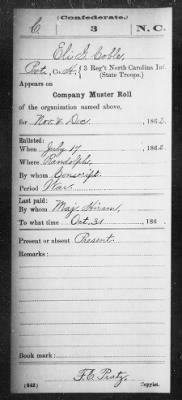 (Confederate.)
C 3 N.C.
Eli G. Coble
Pvt., Co. A, 3 Reg't North Carolina Inf.
(State Troops.)
Appears on
Company Muster Roll
of the organization named above,
for Nov. & Dec., 1862.
Enlisted:
When July 17, 1862.
Where Randolph
By whom Conscript
Period War
Last paid:
By whom Maj. Hiram
To what time Oct. 31, 186
Present or absent Present.
Remarks:
Book mark:
F. C. Pratz
(642) Copyist.